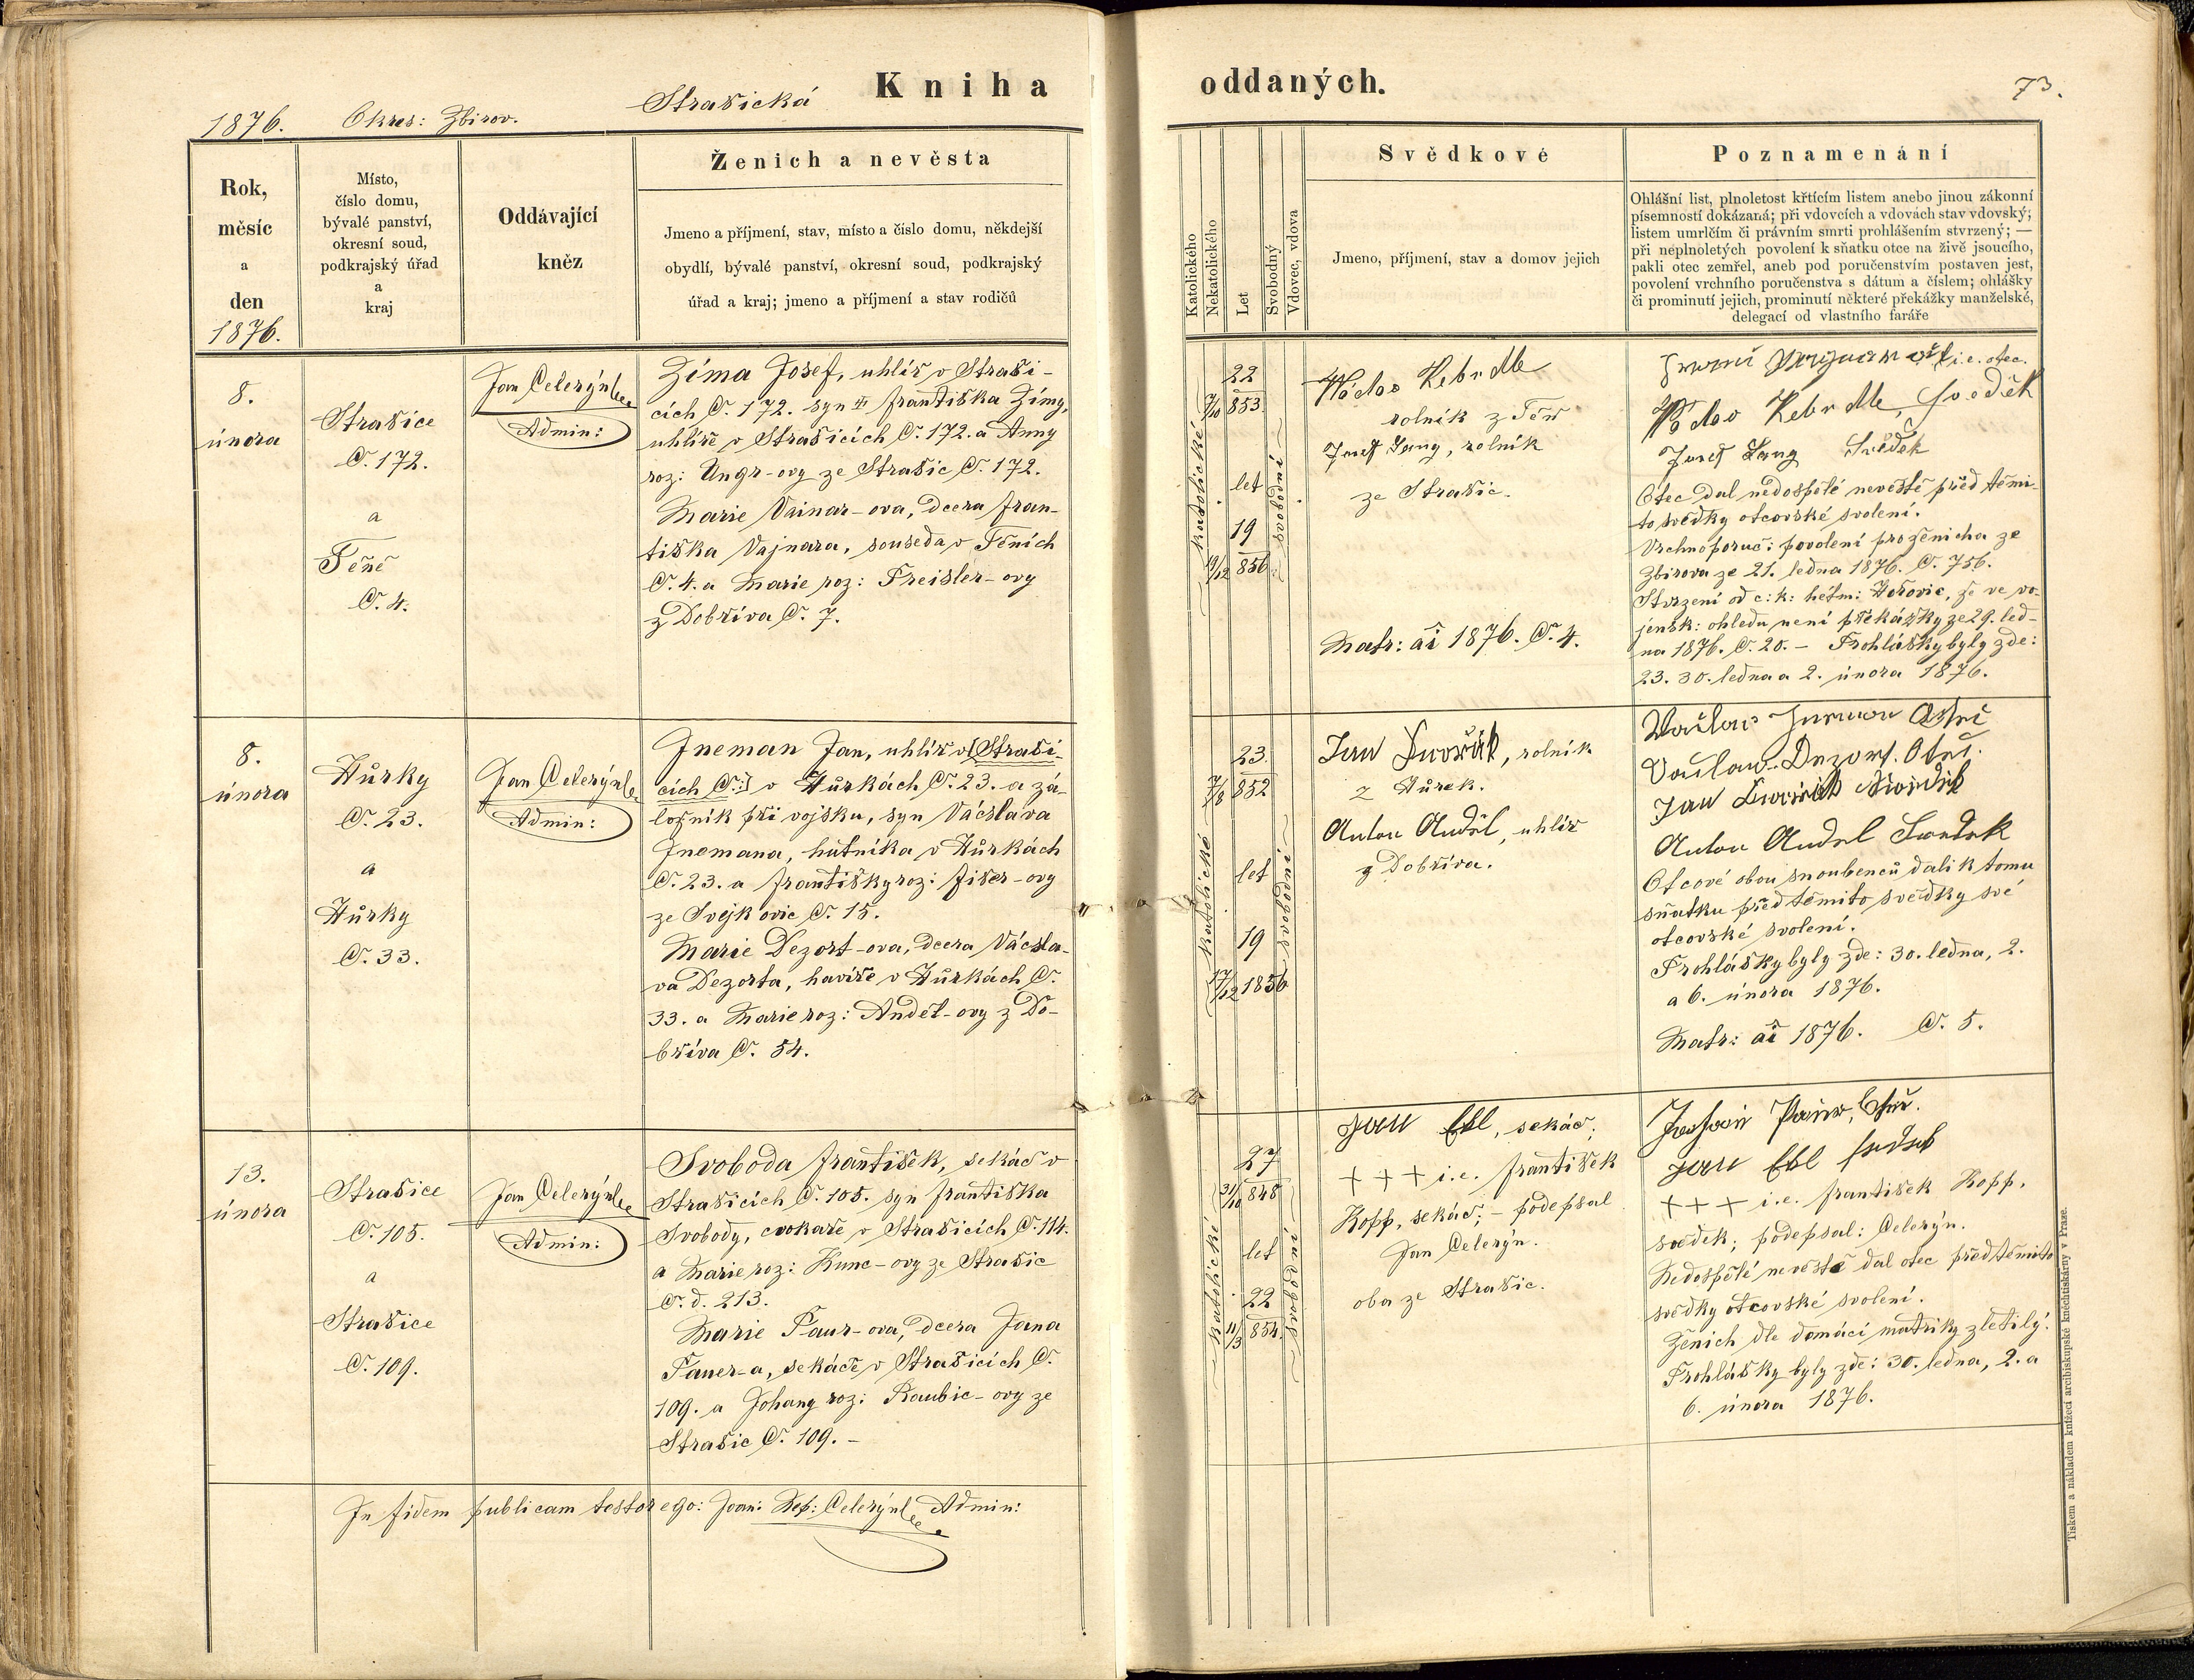 1876. Okres: Zbirov. Strašická Kniha
Rok,
měsíc
a
den
1876.
Místo,
číslo domu,
bývalé panství,
okresní soud,
podkrajský úřad
a
kraj
Oddávající
kněz
Ženich a nevěsta
Jmeno a příjmení, stav, místo a číslo domu, někdejší
obydlí, bývalé panství, okresní soud, podkrajský
úřad a kraj; jmeno a příjmení a stav rodičů
8.
února
Strašice
Č. 172.
a
Těně
Č. 4.
Jan Celerýn
Admin:
Zíma Josef, uhlíř v Straši-
cích Č. 172. syn Františka Zímy,
uhlíře v Strašicích Č. 172. a Anny
roz: Ungr-ovy ze Strašic Č. 172.
Marie Vainar-ova, dcera Fran-
tiška Vajnara, souseda v Těních
Č. 4. a Marie roz: Preisler-ovy
z Dobříva Č. 7.
8.
února
Hůrky
Č. 23.
a
Hůrky
Č. 33.
Jan Celerýn
Admin:
Jneman Jan, uhlíř v [Straši-
cích Č:] v Hůrkách Č. 23. a zá-
ložník při vojsku, syn Václava
Jnemana, hutníka v Hůrkách
Č. 23. a Františky roz: Fišer-ovy
ze Svejkovic Č. 15.
Marie Dezort-ova, dcera Václa-
va Dezorta, havíře v Hůrkách Č.
33. a Marie roz: Anděl-ovy z Do-
bříva Č. 54.
13.
února
Strašice
Č. 105.
a
Strašice
Č. 109.
Jan Celerýn
Admin:
Svoboda František, sekáč v
Strašicích Č. 105. syn Františka
Svobody, cvokaře v Strašicích Č. 114.
a Marie roz: Kunc-ovy ze Strašic
Č. d. 213.
Marie Paur-ova, dcera Jana
Pauer-a, sekáče v Strašicích Č.
109. a Johany roz: Raubic-ovy ze
Strašic Č. 109. -
In fidem publicam testor ego: Joan: Nep: Celerýn Admin:
oddaných.
73.
Katolického
Nekatolického
Let
Svobodný
Vdovec, vdova
Svědkové
Jmeno, příjmení, stav a domov jejich
Poznamenání
Ohlášní list, plnoletost křtícím listem anebo jinou zákonní
písemností dokázaná; při vdovcích a vdovách stav vdovský;
listem umrlčím či právním smrti prohlášením stvrzený; —
při neplnoletých povolení k sňatku otce na živě jsoucího,
pakli otec zemřel, aneb pod poručenstvím postaven jest,
povolení vrchního poručenstva s dátum a číslem; ohlášky
či prominutí jejich, prominutí některé překážky manželské,
delegací od vlastního faráře
katolické
22
7/10 853.
let
19
19/12 856.
svobodní
Kebrdle
rolník z Těň
Josef Lang, rolník
ze Strašic.
Matr: ai 1876. Č. 4.
i. e. otec.
Kebrdle, svědek
Josef Lang Svědek
Otec dal nedospělé nevěstě před těmi-
to svědky otcovské svolení.
Vrchnoporuč: povolení pro ženicha ze
Zbirova ze 21. ledna 1876. Č. 756.
Stvrzení od c: k: hejtm: Hořovic, že ve vo-
jensk: ohledu není překážky ze 29. led-
na 1876. Č. 20. - Prohlášky byly zde:
23. 30. ledna a 2. února 1876.
katolické
23.
7/8 852
let
19
17/12 1856
svobodní
Jan Dvořák, rolník
z Hůrek.
Anton Anděl, uhlíř
z Dobříva.
Václav Jneman Otec
Václav Dezort. Otec.
Jan Dvořák Svědek
Anton Anděl Svedek
Otcové obou snoubenců dali k tomu
sňatku před těmito svědky své
otcovské svolení.
Prohlášky byly zde: 30. ledna, 2.
a 6. února 1876.
Matr: ai 1876. Č. 5.
katolické
27
31/10 848
let
22
11/3 854.
svobodní
Jan Ebl, sekáč;
+ + + i. e. František
Kopp, sekáč; - podepsal
Jan Celerýn.
oba ze Strašic.
Jan Ebl
+ + + i. e. František Kopp,
svědek; podepsal: Celerýn.
Nedospělé nevěstě dal otec před těmito
svědky otcovské svolení.
Ženich dle domácí matriky zletilý.
Prohlášky byly zde: 30. ledna, 2. a
6. února 1876.
Tiskem a nákladem knížecí arcibiskupské knihtiskárny v Praze.